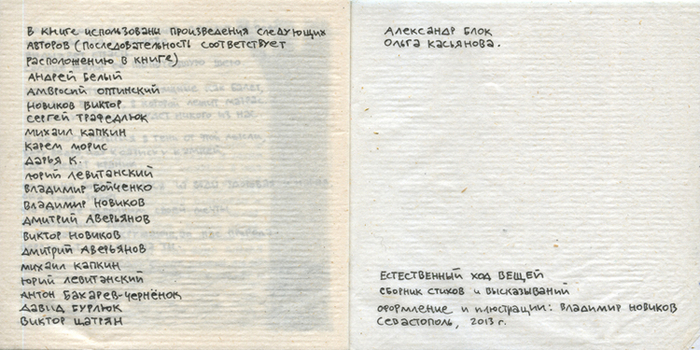 В книге использованы произведения следующих
авторов (последовательность соответствует
расположению в книге)
Андрей Белый
Амвросий Оптинский
Новиков Виктор
Сергей Трафедлюк
Михаил Капкин
Карем Морис
Дарья К.
Юрий Левитанский
Владимир Бойченко
Владимир Новиков
Дмитрий Аверьянов
Виктор Новиков
Дмитрий Аверьянов
Михаил Капкин
Юрий Левитанский
Антон Бахарев-Чернёнок
Давид Бурлюк
Виктор Шатрян
Александр Блок
Ольга Касьянова.
Естественный ход вещей
сборник стихов и высказываний
оформление и илюстрации: Владимир Новиков
Севастополь, 2013 г.